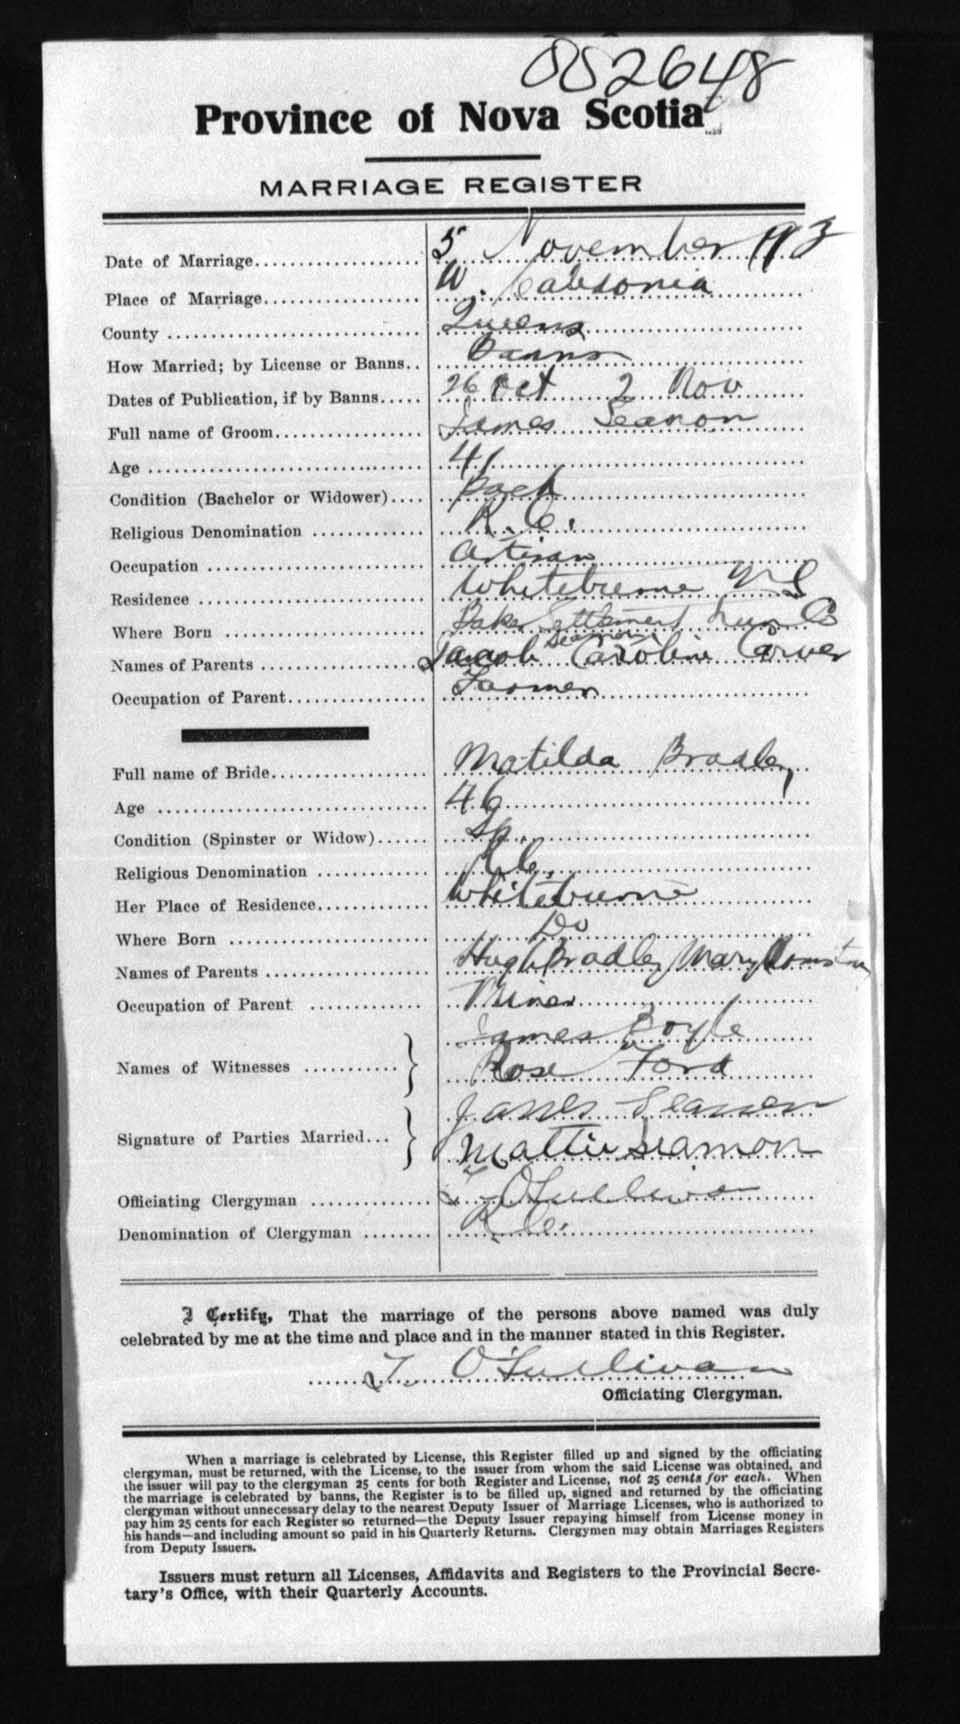 002648
Province of Nova Scotia
MARRIAGE REGISTER
Date of Marriage 5 November 1913
Place of Marriage W. Caledonia
County Queens
How Married; by License or Banns Banns
Dates of Publication, if by Banns 26 Oct 2 Nov
Full name of Groom James Seamon
Age 41
Condition (Bachelor or Widower) Bach
Religious Denomination R. C.
Occupation Artisan
Residence Whiteburne N S
Where Born Baker Settlement Lun Co
Seamon
Names of Parents Jacob Caroline Carver
Occupation of Parent Farmer
Full name of Bride Matilda Bradley
Age 46
Condition (Spinster or Widow) Sp.
Religious Denomination R C.
Her Place of Residence Whiteburne
Where Born Do
Names of Parents Hugh Bradley Mary
Occupation of Parent Miner
James Boyle
Names of Witnesses Rose Ford
James Seamon
Signature of Parties Married Mattie Seamon
Officiating Clergyman T. O'Sullivan
Denomination of Clergyman R. C.
I Certify, That the marriage of the persons above named was duly
celebrated by me at the time and place and in the manner stated in this Register.
T. O'Sullivan
Officiating Clergyman.
When a marriage is celebrated by License, this Register filled up and signed by the officiating
clergyman, must be returned, with the License, to the issuer from whom the said License was obtained, and
the issuer will pay to the clergyman 25 cents for both Register and License, not 25 cents for each. When
the marriage is celebrated by banns, the Register is to be filled up, signed and returned by the officiating
clergyman without unnecessary delay to the nearest Deputy Issuer of Marriage Licenses, who is authorized to
pay him 25 cents for each Register so returned—the Deputy Issuer repaying himself from License money in
his hands—and including amount so paid in his Quarterly Returns. Clergymen may obtain Marriages Registers
from Deputy Issuers.
Issuers must return all Licenses, Affidavits and Registers to the Provincial Secre-
tary's Office, with their Quarterly Accounts.